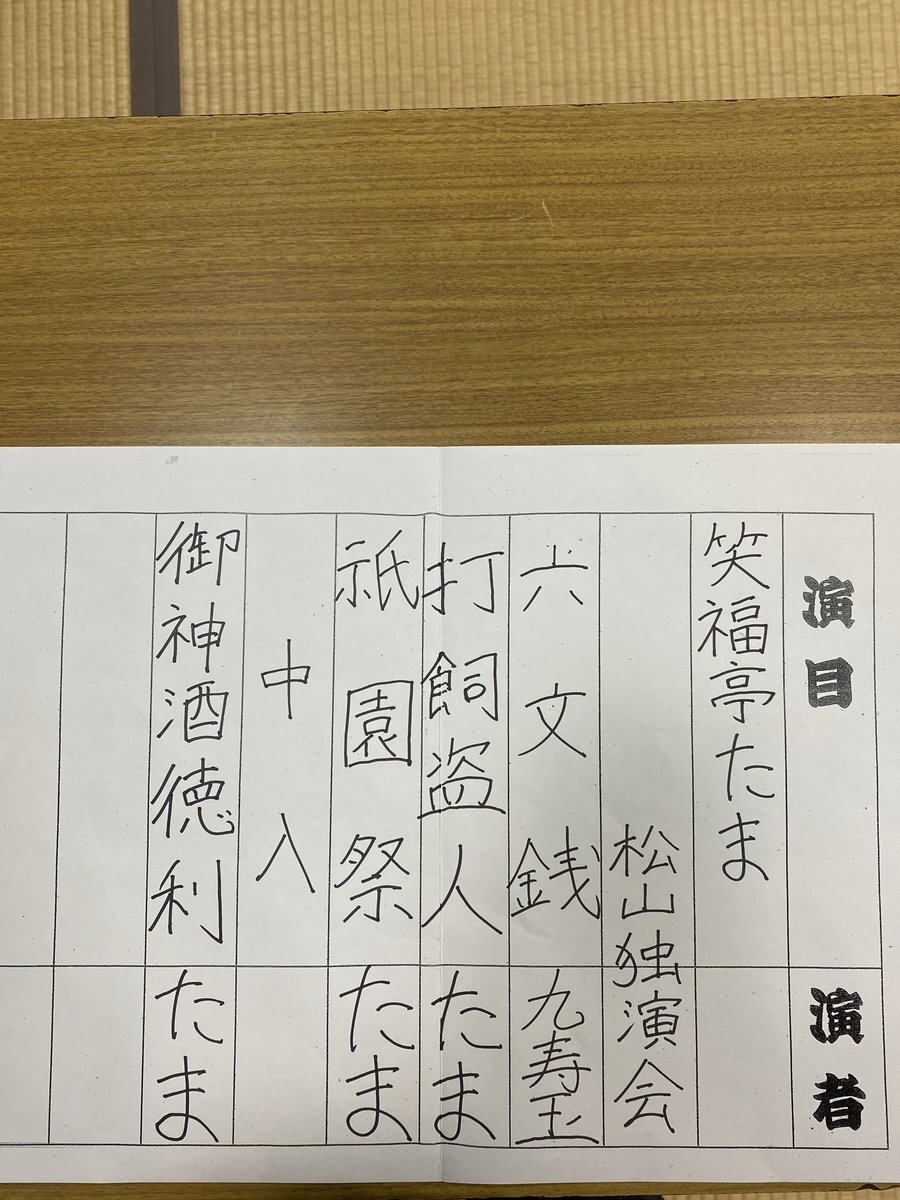 演目 演者
笑福亭たま
松山独演会
六文銭 九寿玉
打飼盗人 たま
祇園祭 たま
中入
御神酒徳利 たま